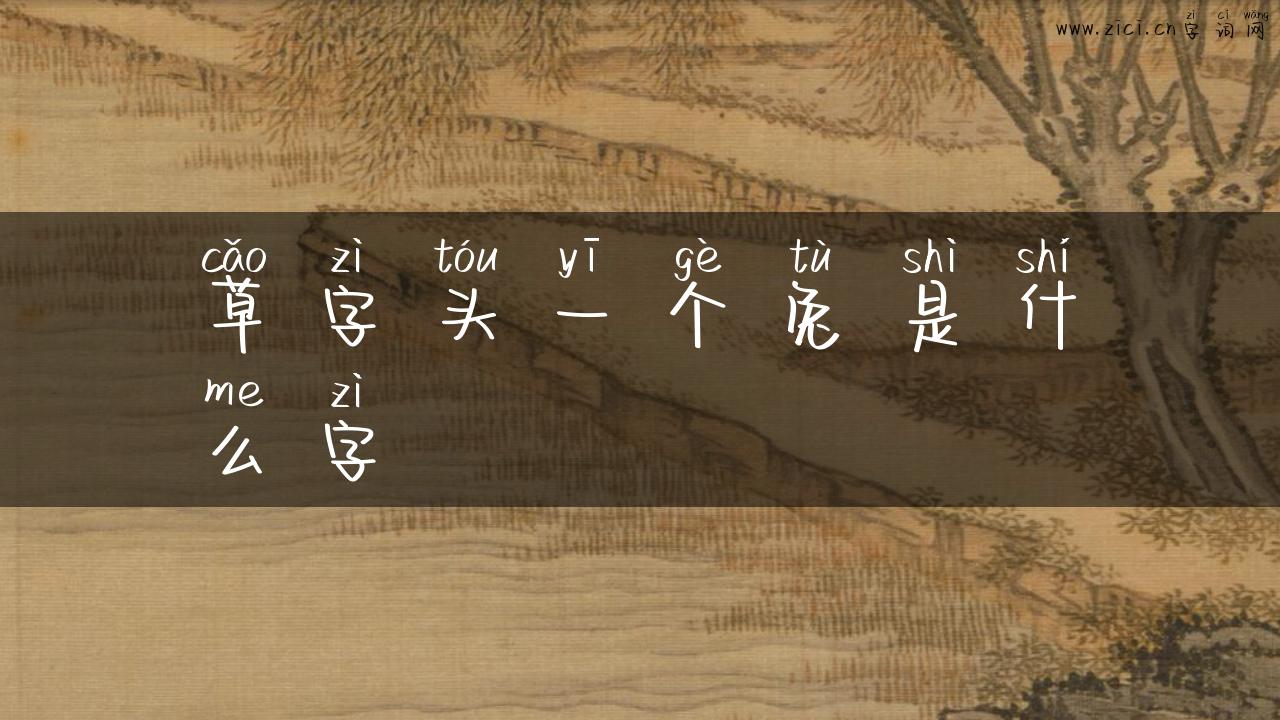 zì cí wǎng
www.zici.cn 字词网
cǎo zì tóu yī gè tù shì shí
草字头一个兔是什
me zì
么字